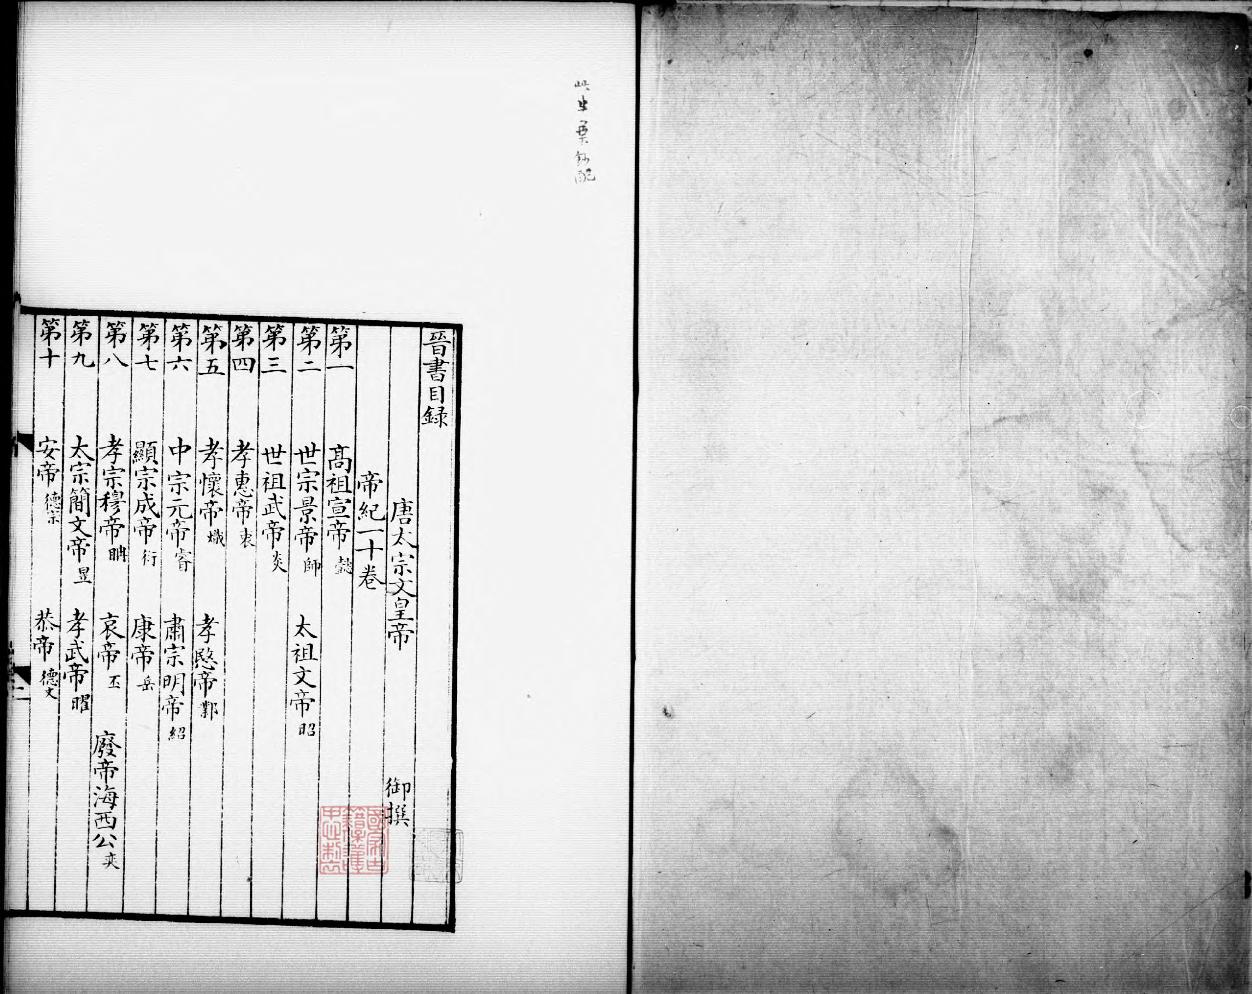 此半葉鈔配
晉書目録
唐太宗文皇帝 御撰
帝紀一十卷
第一 髙祖宣帝懿
第二 世宗景帝師 太祖文帝昭
第三 世祖武帝炎
第四 孝惠帝衷
第五 孝懷帝熾 孝愍帝鄴
第六 中宗元帝睿 肅宗明帝紹
第七 顯宗成帝衍 康帝岳
第八 孝宗穆帝聃 哀帝丕 廢帝海西公奕
第九 太宗簡文帝昱 孝武帝曜
第十 安帝德宗 恭帝德文